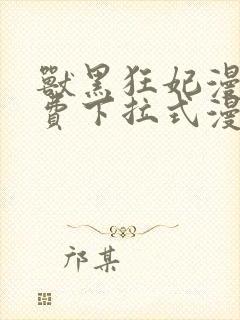 獸黑狂妃漫
費下拉式漫
邝某